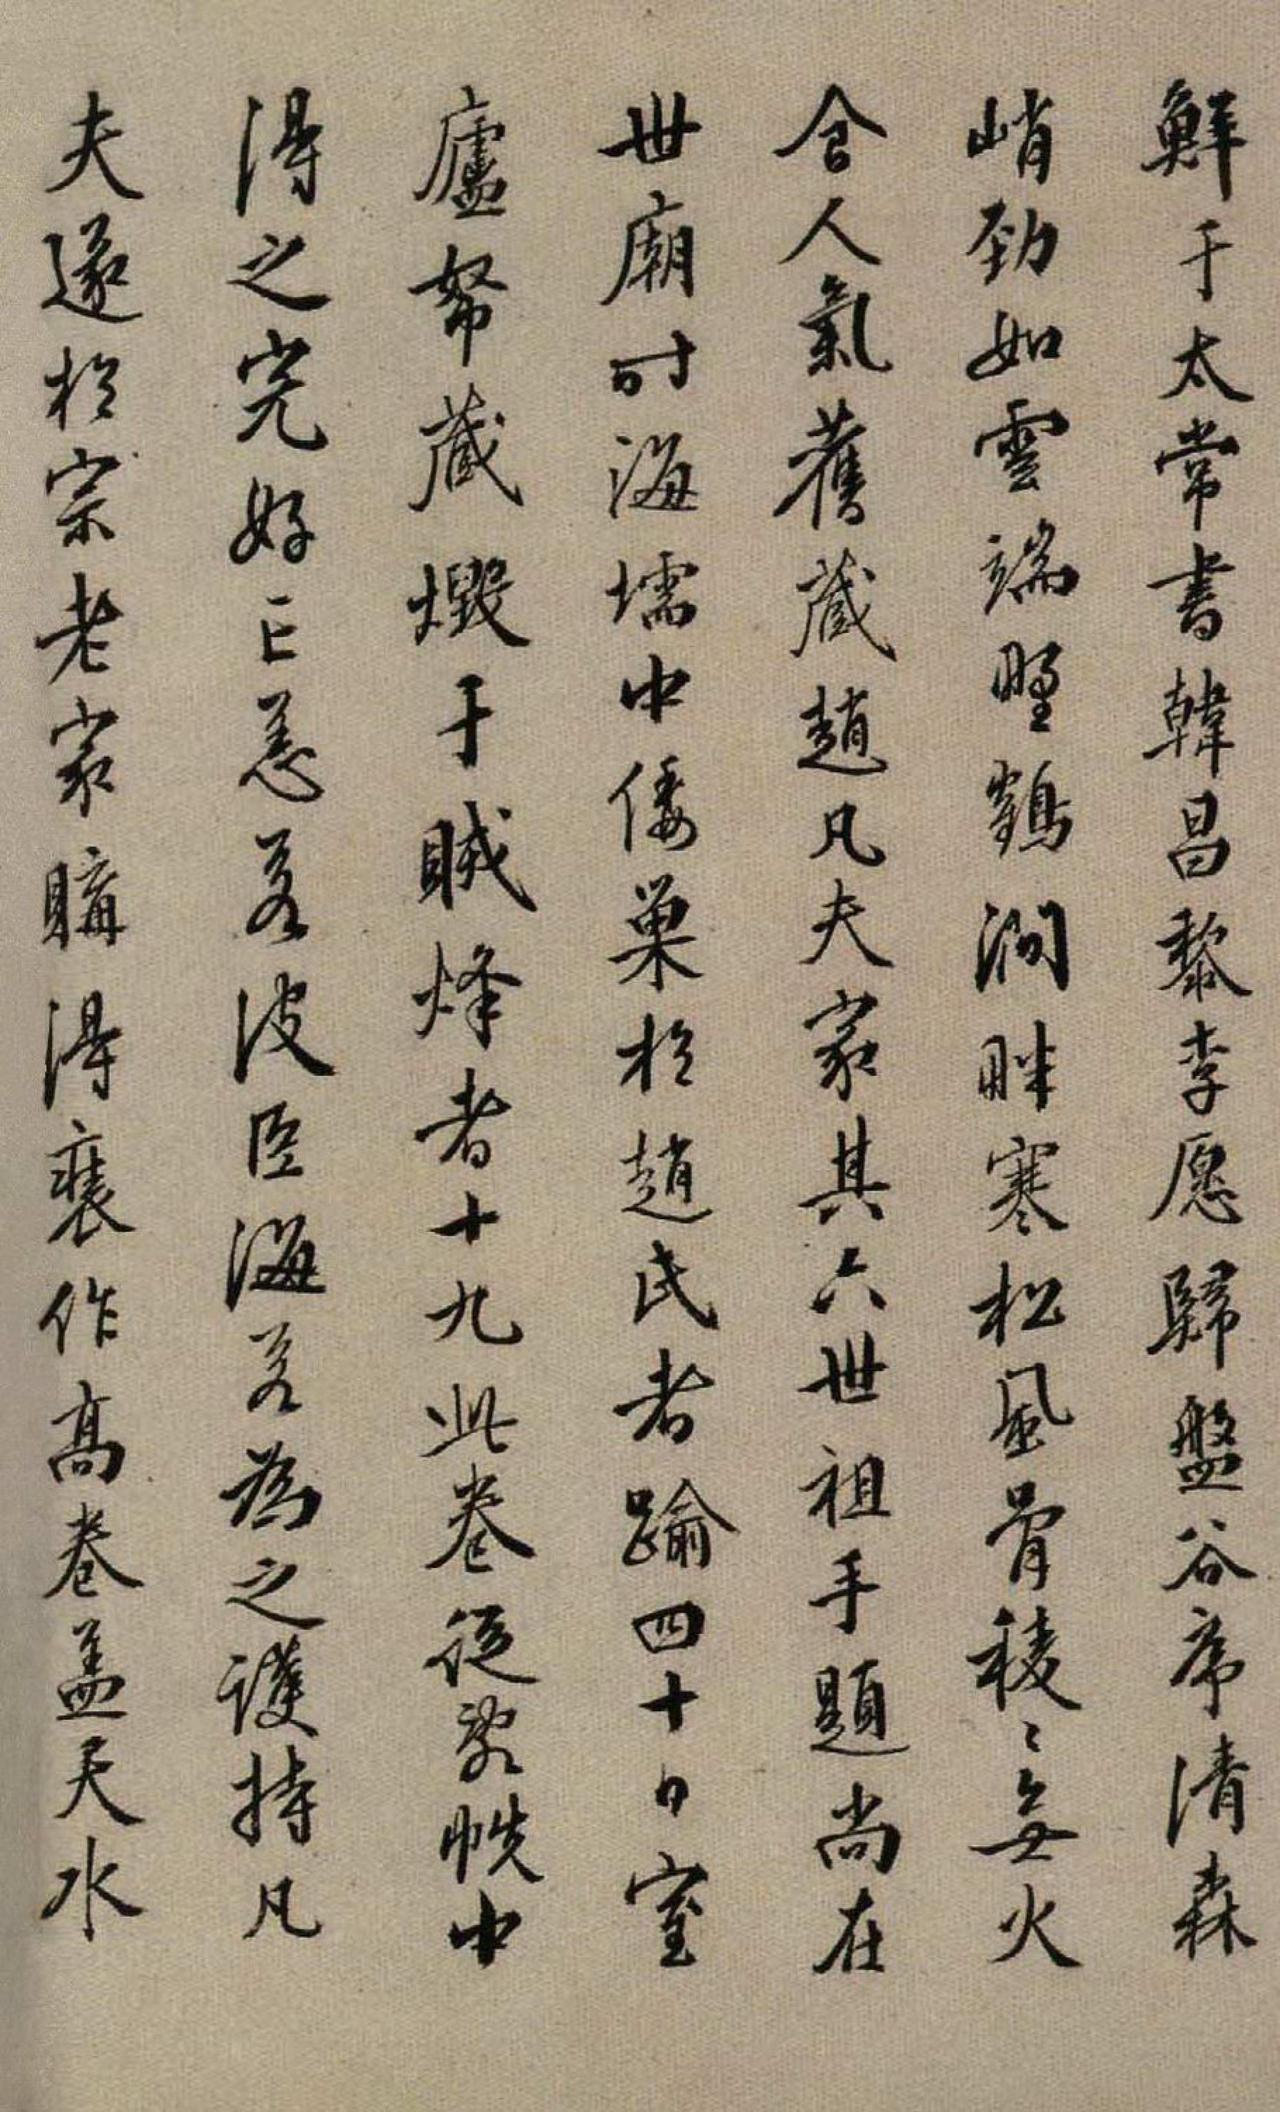 鮮于太常書韓昌黎李愿歸盤谷序清森
峭勁如雲端野鶴澗畔寒松風骨稜〻無火
食人氣舊藏趙凡夫家其六世祖手題尚在
世廟時海壖中倭巢於趙氏者踰四十日室
廬帑藏燬于賊烽者十九此卷從敗帙中
得之完好無恙若波臣海若為之護持凡
夫遂於宗老家購得裝作高卷蓋天水